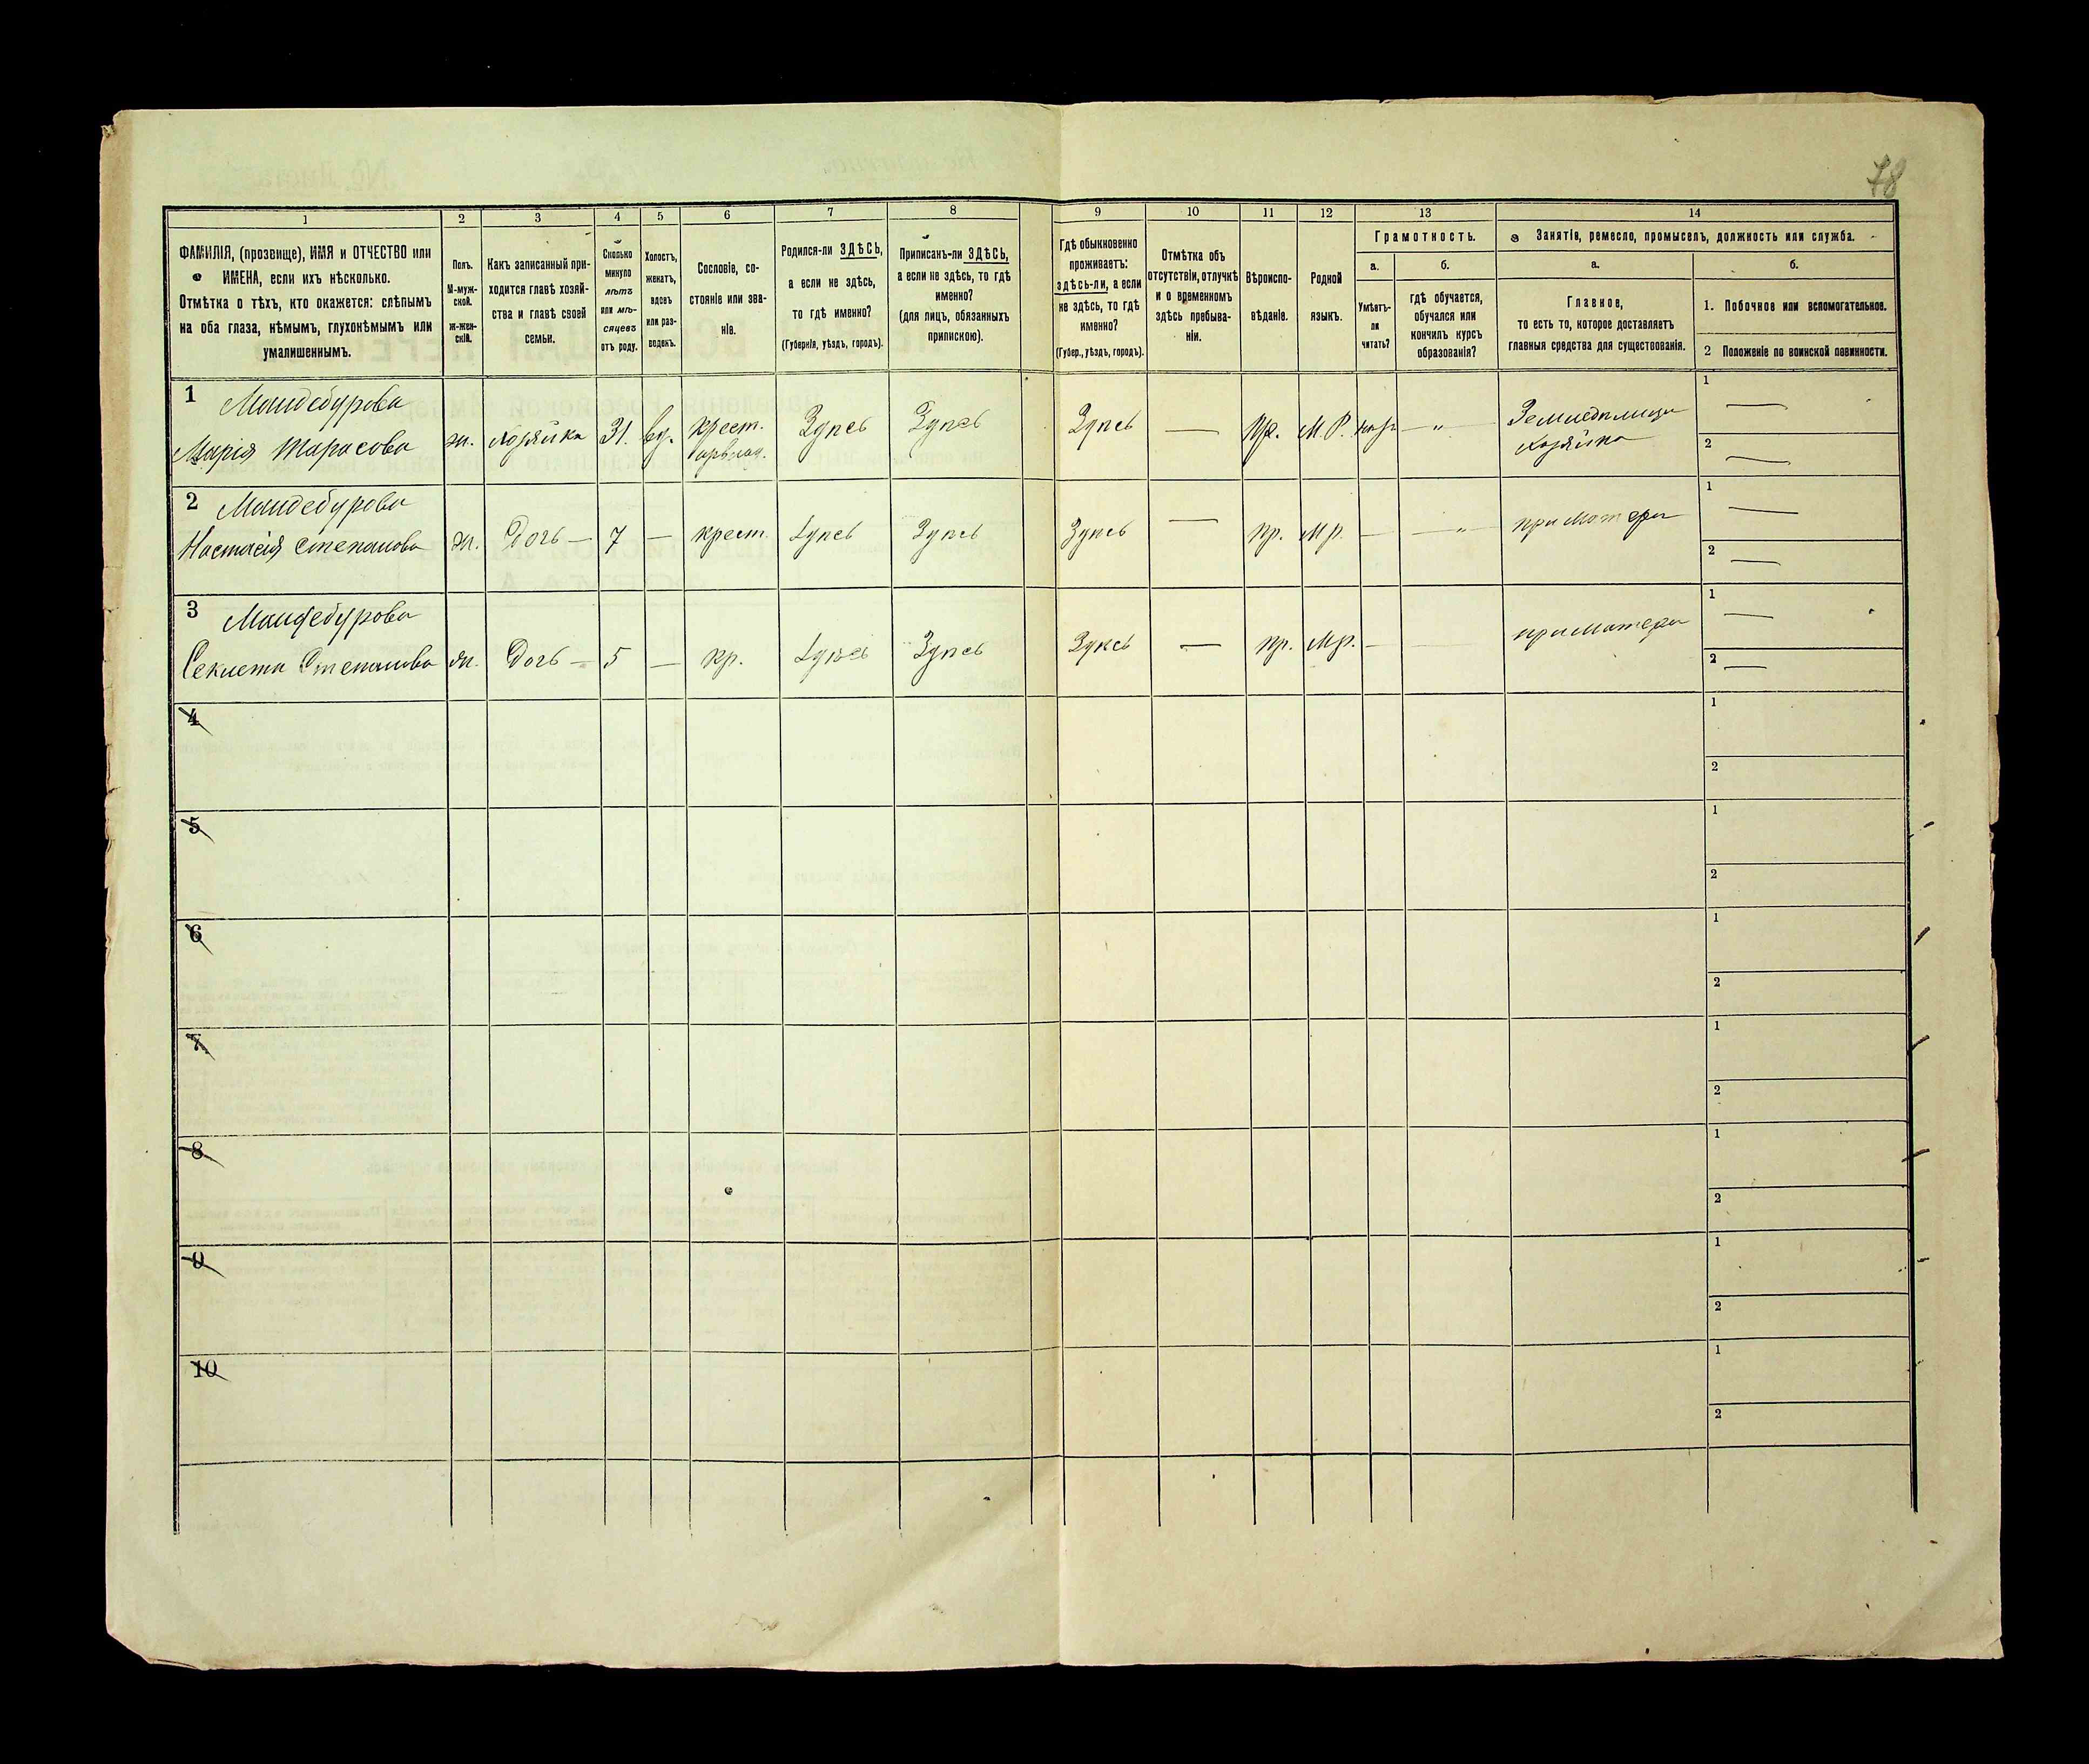 78
1 2 3 4 5 6 7 8 9 10 11 12 13 14
ФАМИЛІЯ, (прозвище), ИМЯ и ОТЧЕСТВО или
ИМЕНА, если ихъ нѣсколько.
Отмѣтка о тѣхъ, кто окажется: слѣпымъ
на оба глаза, нѣмымъ, глухонѣмымъ или
умалишеннымъ.
Полъ.
М-муж-
ской.
ж-жен-
скій.
Какъ записанный при-
ходится главѣ хозяй-
ства и главѣ своей
семьи.
Сколько
минуло
лѣтъ
или мѣ-
сяцевъ
отъ роду.
Холостъ,
женатъ,
вдовъ
или раз-
веденъ.
Сословіе, со-
стояніе или зва-
ніе.
Родился-ли ЗДѢСЬ,
а если не здѣсь,
то гдѣ именно?
(Губернія, уѣздъ, городъ).
Приписанъ-ли ЗДѢСЬ,
а если не здѣсь, то гдѣ
именно?
(для лицъ, обязанныхъ
припискою).
Гдѣ обыкновенно
проживаетъ:
здѣсь-ли, а если
не здѣсь, то гдѣ
именно?
(Губер., уѣздъ, городъ).
Отмѣтка объ
отсутствіи, отлучкѣ
и о временномъ
здѣсь пребыва-
ніи.
Вѣроиспо-
вѣданіе.
Родной
языкъ.
Грамотность.
а.
Умѣетъ-
ли
читать?
б.
гдѣ обучается,
обучался или
кончилъ курсъ
образованія?
Занятіе, ремесло, промыселъ, должность или служба.
а.
Главное,
то есть то, которое доставляетъ
главныя средства для существованія.
б.
1. Побочное или вспомогательное.
2 Положеніе по воинской повинности.
1 Мандебурова
Марія Тарасова жн. хозяйка 31. вд. крест. Здѣсь Здѣсь Здѣсь — Пр. М.Р. — „ — Земледѣлица
хозяйка
1 —
2 —
2 Мандебурова
Настасія Степанова жн. Дочь — 7 — крест. Здѣсь Здѣсь Здѣсь — пр. Мр. — — „ при матери
1 —
2 —
3 Мандебурова
Степанова жн. Дочь — 5 — кр. Здѣсь Здѣсь Здѣсь — пр. Мр. — — при матери
1 —
2 —
4
1
2
5
1
2
6
1
2
7
1
2
8
1
2
9
1
2
10
1
2